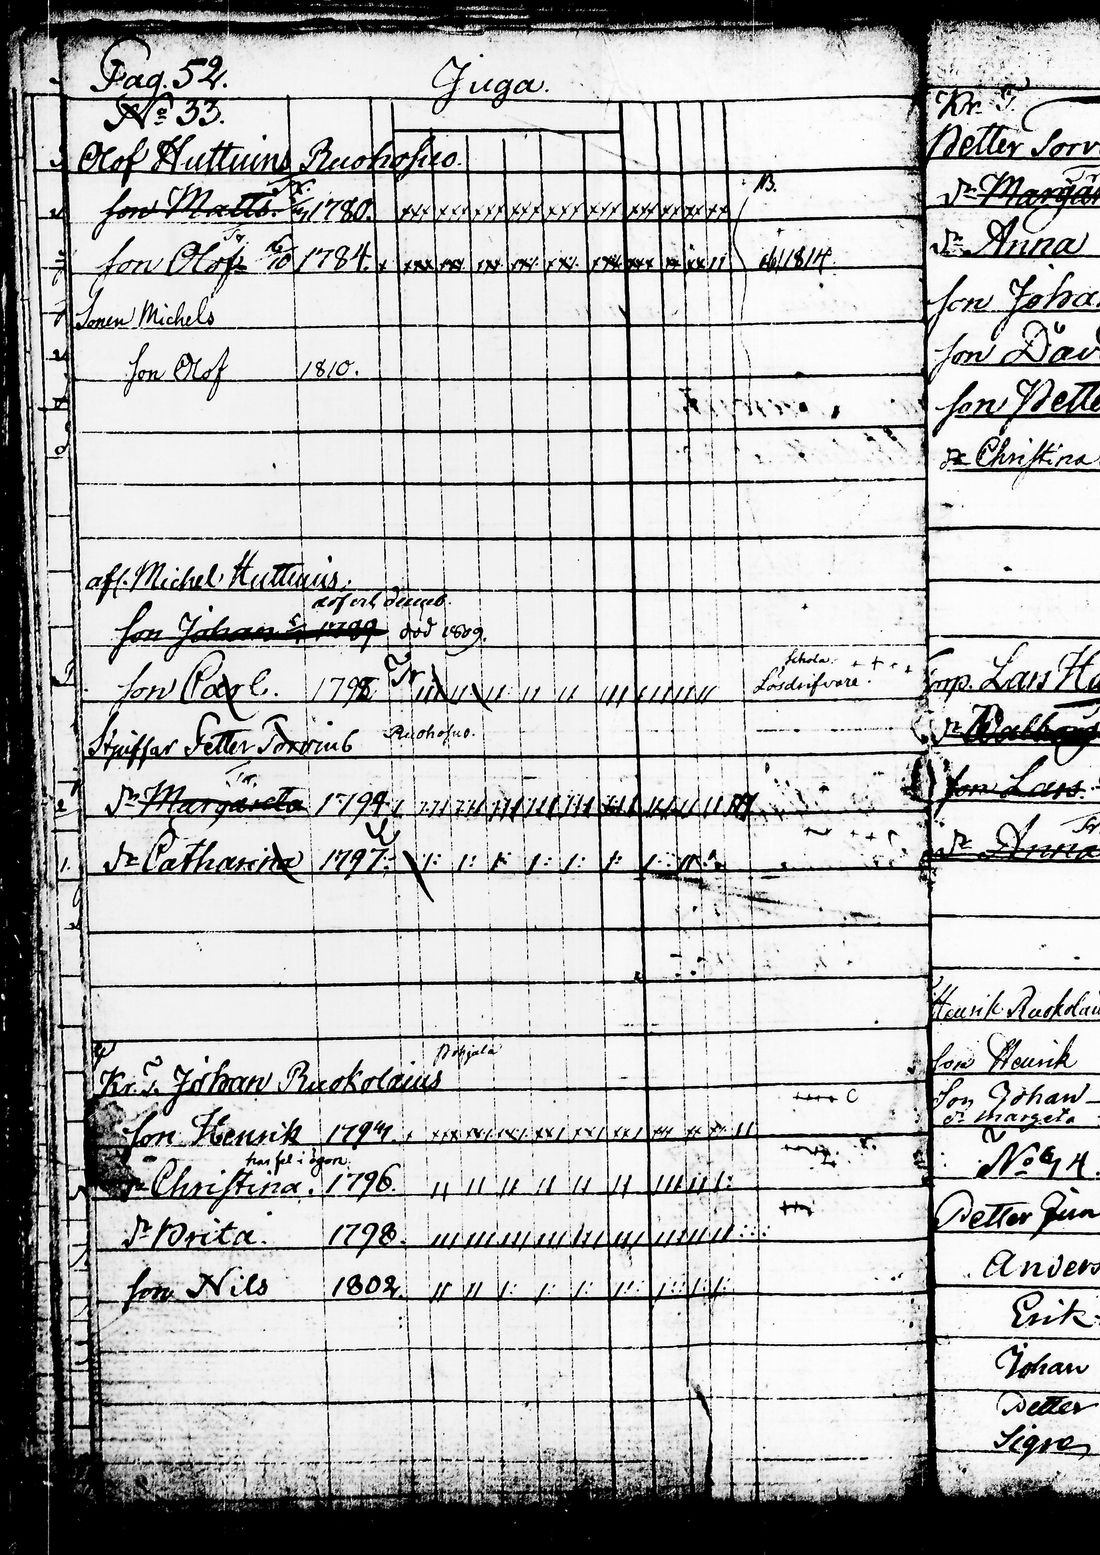 Pag. 52.
Juga.
No 33.
Olof Huttuins Ruohosuo.
son Matts. 1780.
son Olof 1784. 1814.
Sonen Michels
son Olof 1810.
afl. Michel Huttuins.
son Johan 1789 död 1809.
son Carl. 1798
Lösdrifvare.
Petter Torvins Ruohosuo.
dr Margareta 1794
dr Catharina 1797.
Pohjala
Kr. Johan Ruokolains
son Henrik 1794.
har fel i ögon.
dr Christina. 1796.
dr Brita. 1798.
son Nils 1802.
Kr.
Petter Torv
dr Margar
dr Anna
son Joha
son Dav
son Pette
dr Christina
Lars Hu
dr Walborg
son Lars.
dr Anna
Henrik Ruokolain
son Henrik
son Johan
dr Margeta
No 4.
Petter
Anders
Erik
Johan
Petter
Signe